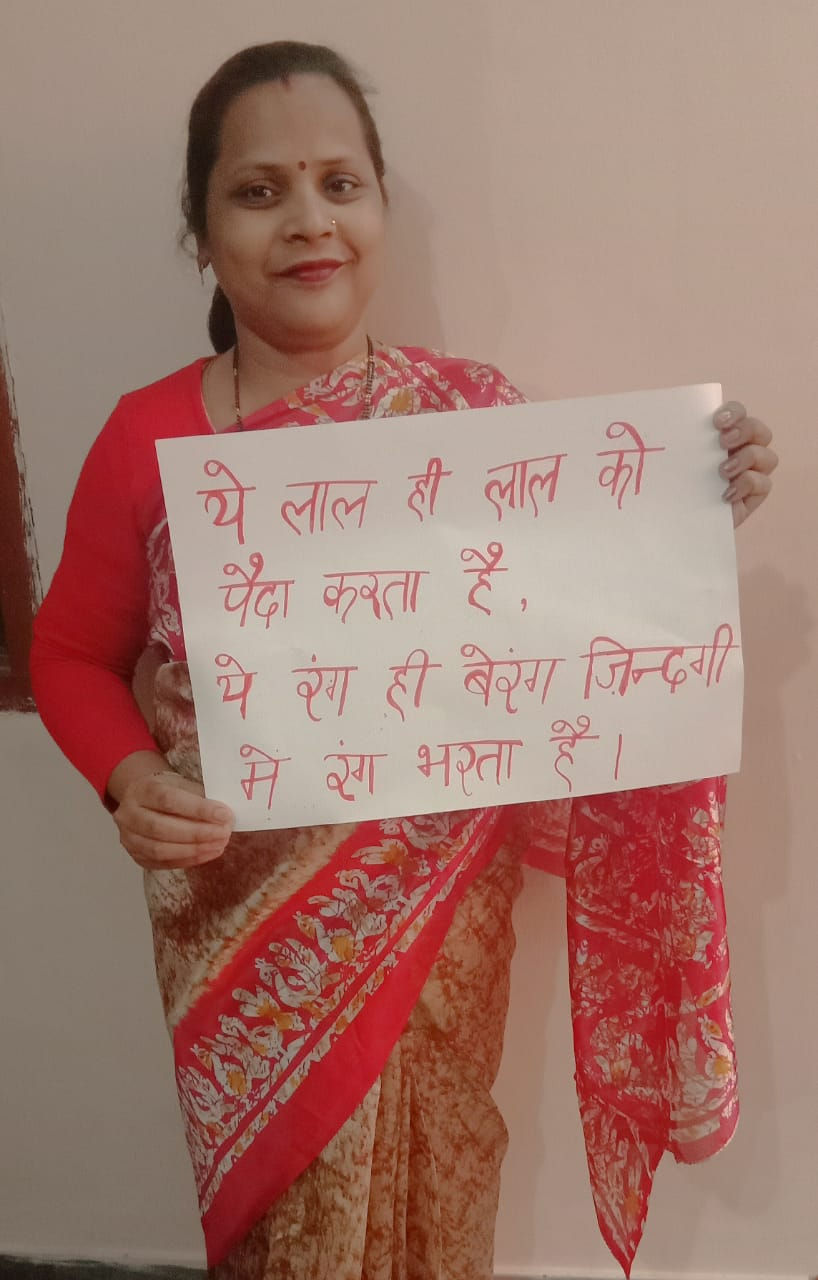 ये लाल ही लाल को
पैदा करता है,
ये रंग ही बेरंग ज़िन्दगी
में रंग भरता है।